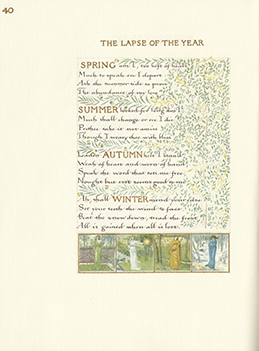 40
THE LAPSE OF THE YEAR
SPRING am I, too soft of heart
Much to speak ere I depart
Ask the summer-tide to prove
The abundance of my love
SUMMER looked for long am I
Much shall change or ere I die
Prithee take it not amiss
Though I weary thee with bliss
Laden AUTUMN here I stand
Weak of heart and worn of hand
Speak the word that sets me free
Nought but rest seems good to me
Ah, shall WINTER mend your case
Set your teeth the wind to face
Beat the snow down, tread the frost,
All is gained when all is lost.